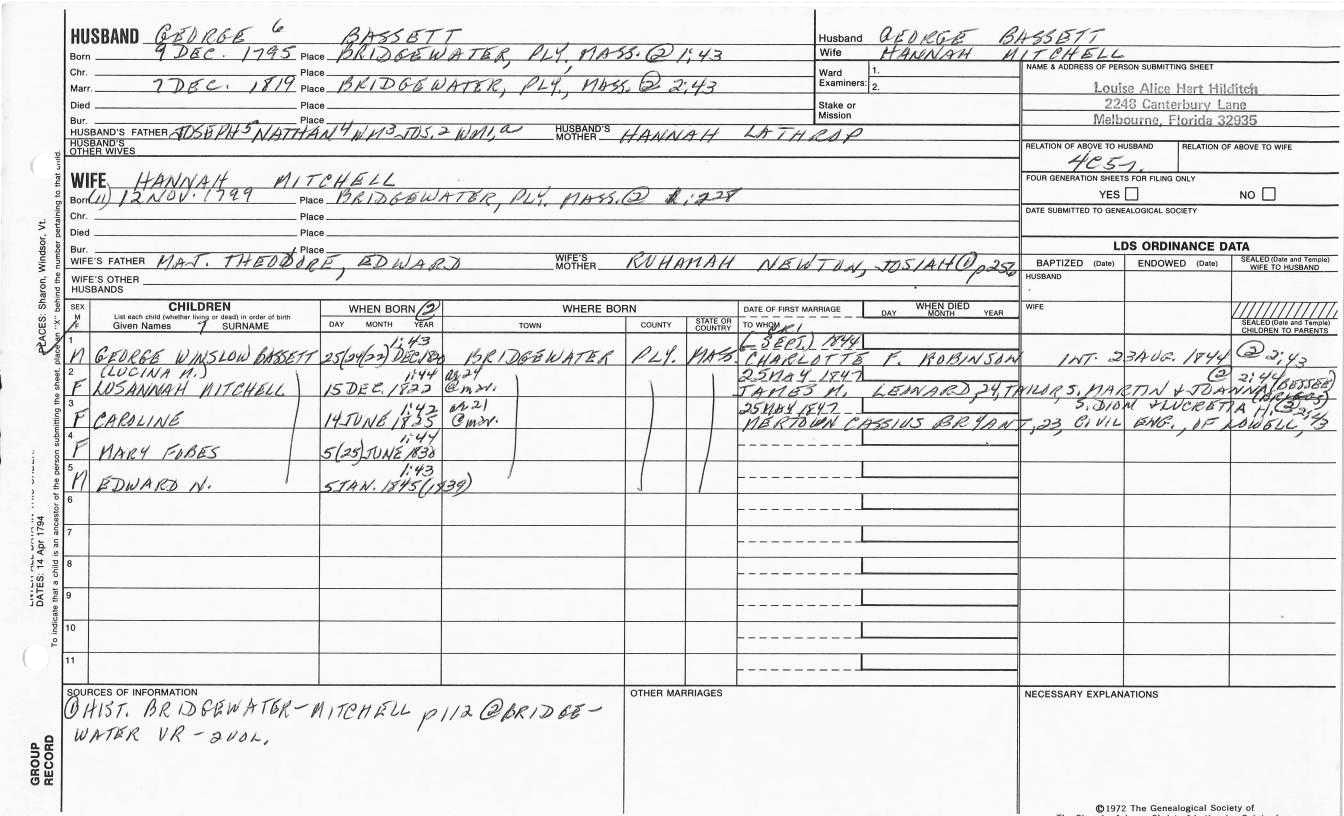 HUSBAND GEORGE 6 BASSETT
Born 9 DEC. 1795 Place BRIDGEWATER, PLY. MASS. @ 1:43
Chr. Place
Marr. 7 DEC. 1819 Place BRIDGEWATER, PLY., MASS. @ 2:43
Died Place
Bur. Place
HUSBAND'S FATHER JOSEPH 5 NATHAN 4 WM 3 JOS. 2 WM 1, a HUSBAND'S MOTHER HANNAH LATHROP
HUSBAND'S OTHER WIVES
WIFE HANNAH MITCHELL
Born (11) 12 NOV. 1799 Place BRIDGEWATER, PLY. MASS. @ 1:228
Chr. Place
Died Place
Bur. Place
WIFE'S FATHER MAJ. THEODORE, EDWARD WIFE'S MOTHER RUHAMAH NEWTON, JOSIAH ① p256
WIFE'S OTHER HUSBANDS
Husband GEORGE BASSETT
Wife HANNAH MITCHELL
Ward Examiners: 1.
2.
Stake or Mission
NAME & ADDRESS OF PERSON SUBMITTING SHEET
Louise Alice Hart Hilditch
2248 Canterbury Lane
Melbourne, Florida 32935
RELATION OF ABOVE TO HUSBAND RELATION OF ABOVE TO WIFE
4C5r.
FOUR GENERATION SHEETS FOR FILING ONLY
YES NO
DATE SUBMITTED TO GENEALOGICAL SOCIETY
LDS ORDINANCE DATA
BAPTIZED (Date) ENDOWED (Date) SEALED (Date and Temple) WIFE TO HUSBAND
HUSBAND
WIFE
SEALED (Date and Temple) CHILDREN TO PARENTS
SEX M F
CHILDREN WHEN BORN ② WHERE BORN DATE OF FIRST MARRIAGE WHEN DIED
List each child (whether living or dead) in order of birth
Given Names 7 SURNAME DAY MONTH YEAR TOWN COUNTY STATE OR COUNTRY TO WHOM DAY MONTH YEAR
1 1:43 (- SEPT.) 1844
M GEORGE WINSLOW BASSETT 25(24)(22) DEC. 1820 BRIDGEWATER PLY. MASS. CHARLOTTE F. ROBINSON INT. 23 AUG. 1844 ② 2:43
2 (LUCINA M.) 1:44 24 25 MAY 1847 ② 2:44
F LUSANNAH MITCHELL 15 DEC. 1822 @ mar. JAMES M. LEONARD, 24, TAILOR, S. MARTIN & JOANNA (BESSEE)
3 1:42 21 25 MAY 1847 S. DION & LUCRETIA H.
F CAROLINE 14 JUNE 1825 @ mar. MERTOWN CASSIUS BRYANT, 23, CIVIL ENG., OF LOWELL,
4 1:44
F MARY FOBES 5(25) JUNE 1830
5 1:43
M EDWARD N. 5 JAN. 1845 (1839)
6
7
8
9
10
11
SOURCES OF INFORMATION OTHER MARRIAGES NECESSARY EXPLANATIONS
① HIST. BRIDGEWATER - MITCHELL p112 ② BRIDGE-
WATER VR - 2 VOL.
©1972 The Genealogical Society of
PLACES: Sharon, Windsor, Vt.
DATES: 14 Apr 1794
To indicate that a child is an ancestor of the person submitting the sheet, place an "X" behind the number pertaining to that child.
GROUP RECORD